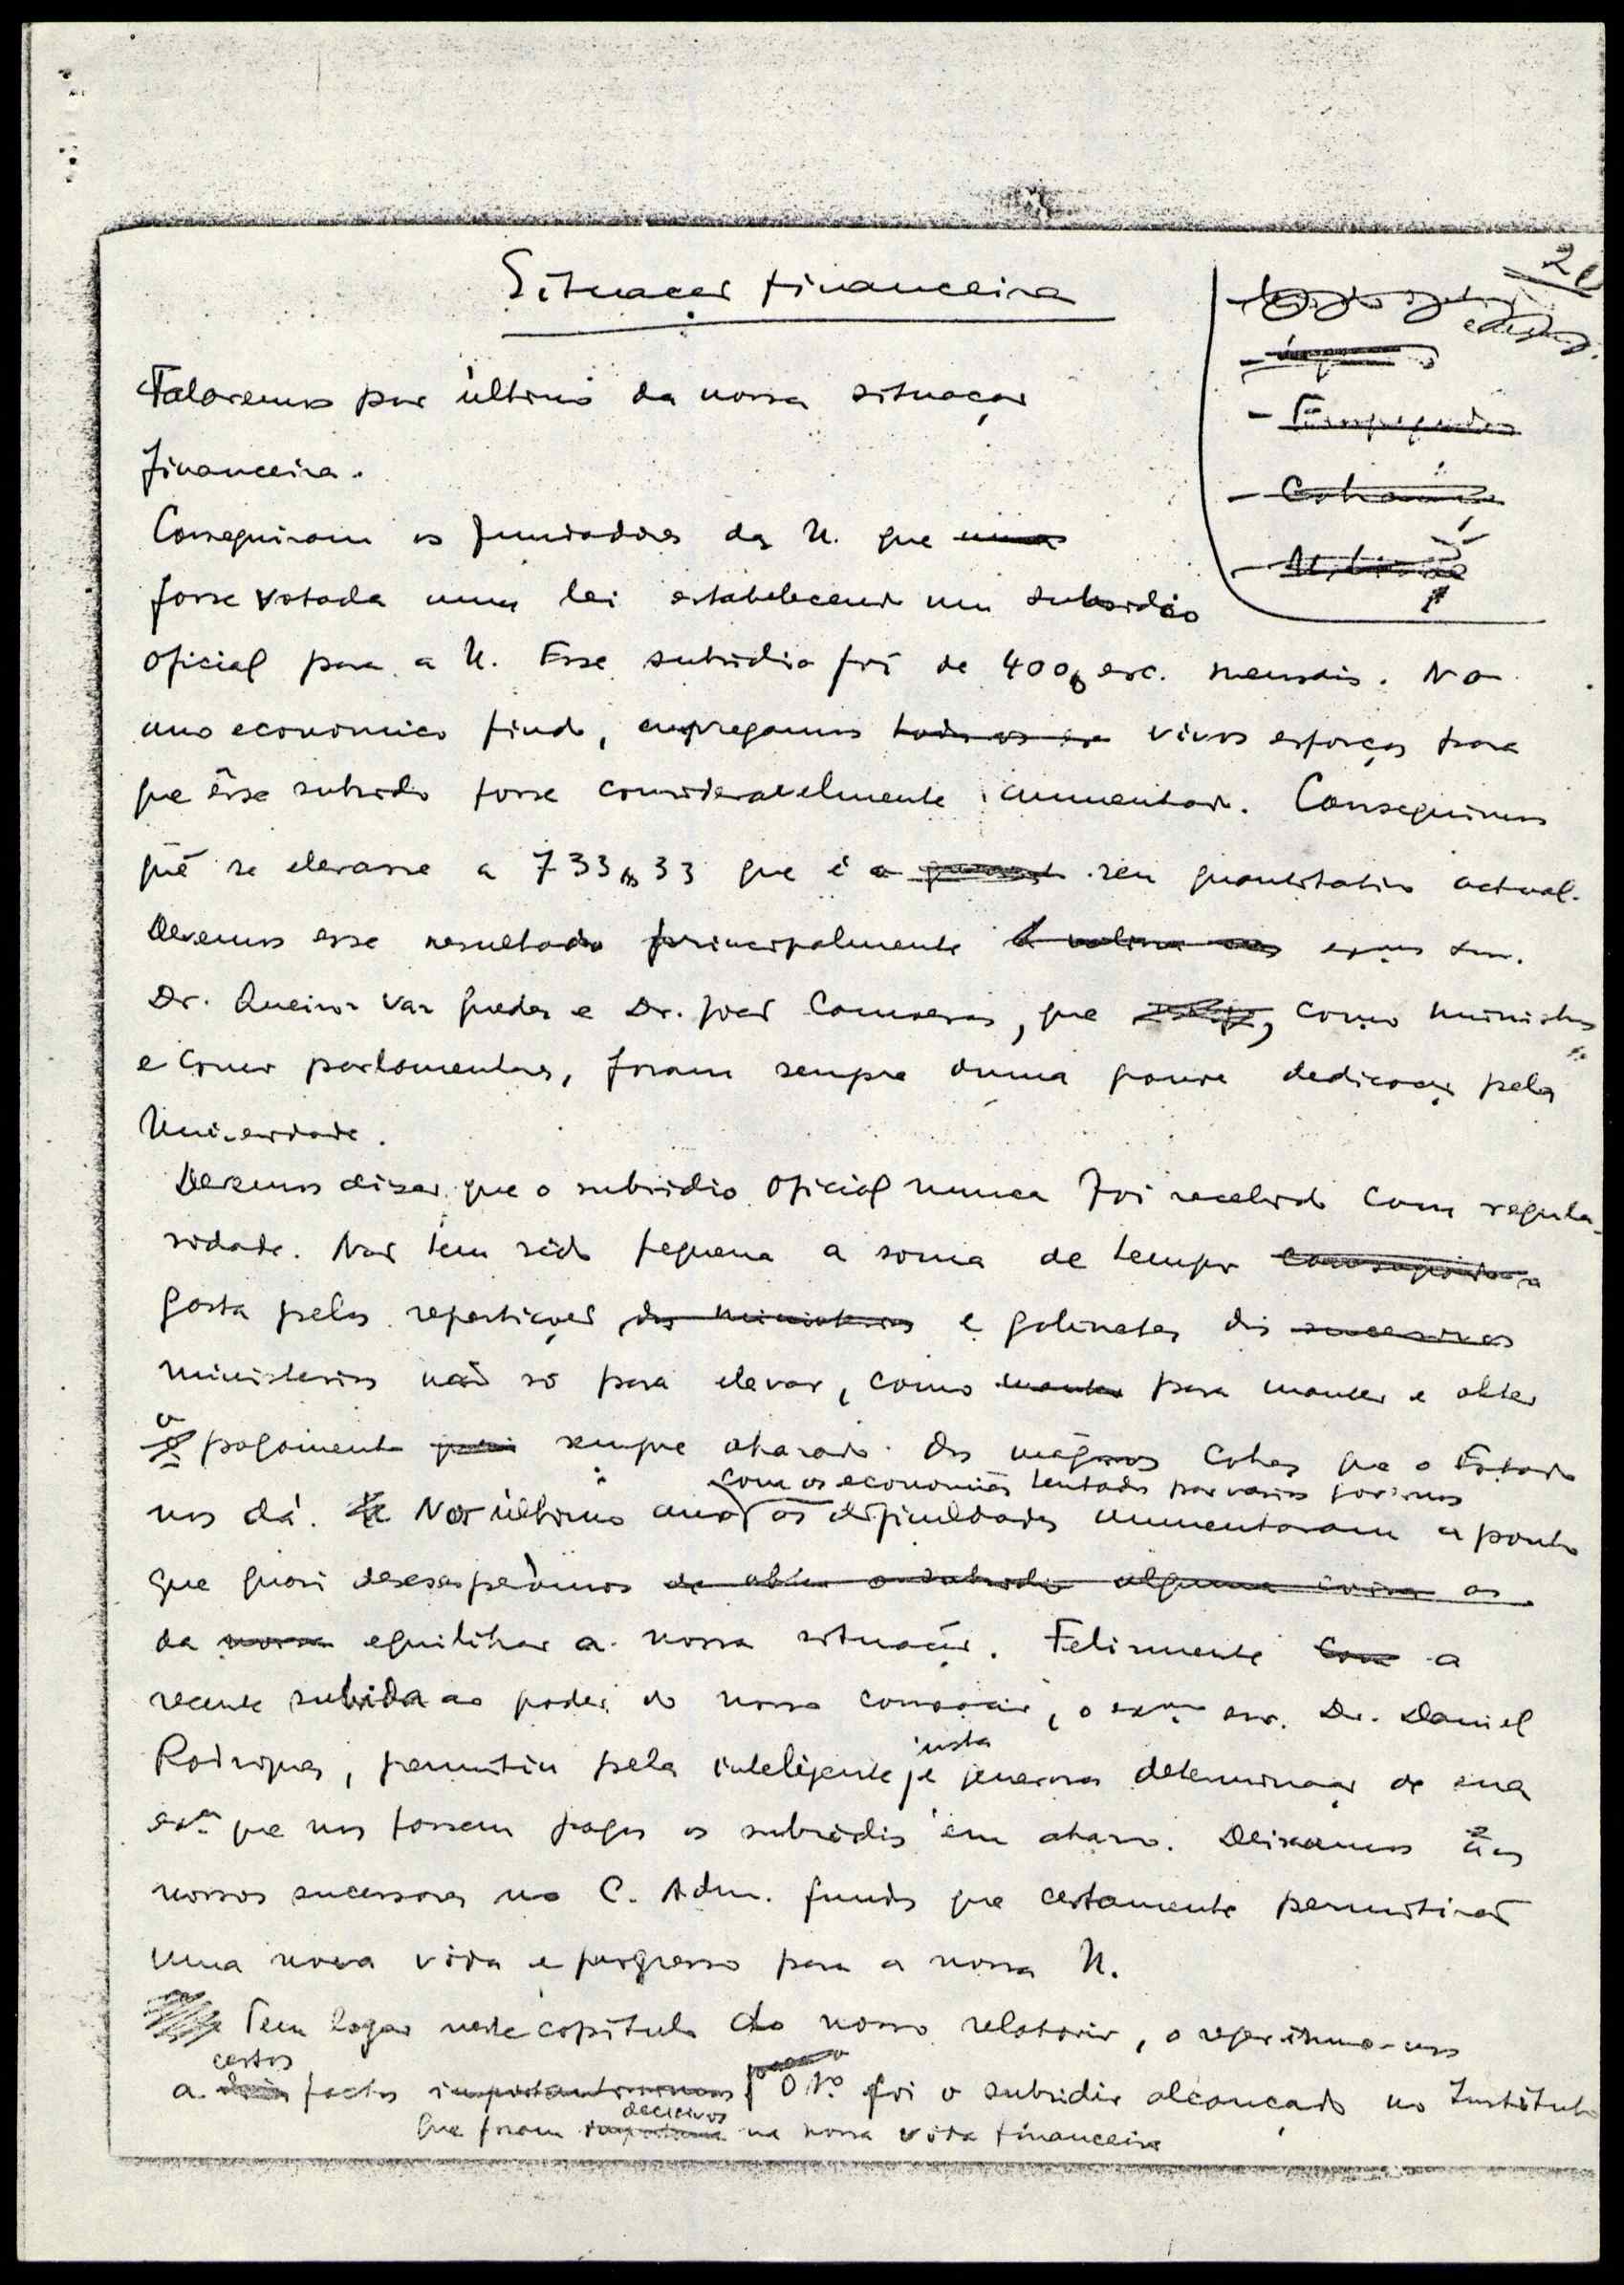 Situação financeira
20
- Empregados
Falaremos por último da nossa situação
financeira.
Conseguiram os fundadores da U. que uma
fosse votada uma lei estabelecendo um subsidio
oficial para a U. Esse subsidio foi de 400$ esc. mensais. No
ano economico findo, empregamos todos os es vivos esforços para
que êsse subsidio fosse consideravelmente aumentado. Conseguimos
que se elevasse a 733$33 que é o seu quantitativo actual.
Devemos esse resultado principalmente exmos snrs.
Dr. Queiroz Vaz Guedes e Dr. João Camoesas, que, como ministros
e como parlamentares, foram sempre duma grande dedicação pela
Universidade.
Devemos dizer que o subsidio oficial nunca foi recebido com regula-
ridade. Não tem sido pequena a soma de tempo
gasta pelas repartições dos ministerios e gabinetes dos sucessivos
ministerios não só para elevar, como manter para manter e obter
o pagamento para sempre atrazado dos magros cobres que o Estado
com as economias tentadas por varios governos
nos dá. No último ano as dificuldades aumentaram a ponto
que quasi desesperâmos de obter o subsidio alguma coisa os
da nossa equilibrar a nossa situação. Felizmente com a
recente subida ao poder do nosso consocio, o exmo snr. Dr. Daniel
justa
Rodrigues, permitiu pela inteligente e generosa determinação de sua
exa que nos fossem pagos os subsidios em atrazo. Deixamos aos
nossos sucessores no C. Adm. fundos que certamente permitirão
uma nova vida e progresso para a nossa U.
Tem logar neste capítulo do nosso relatorio, o referirmo-nos
certos
a dois factos importantissimos O 1.º foi o subsidio alcançado no Instituto
decicivos
que foram na nossa vida financeira